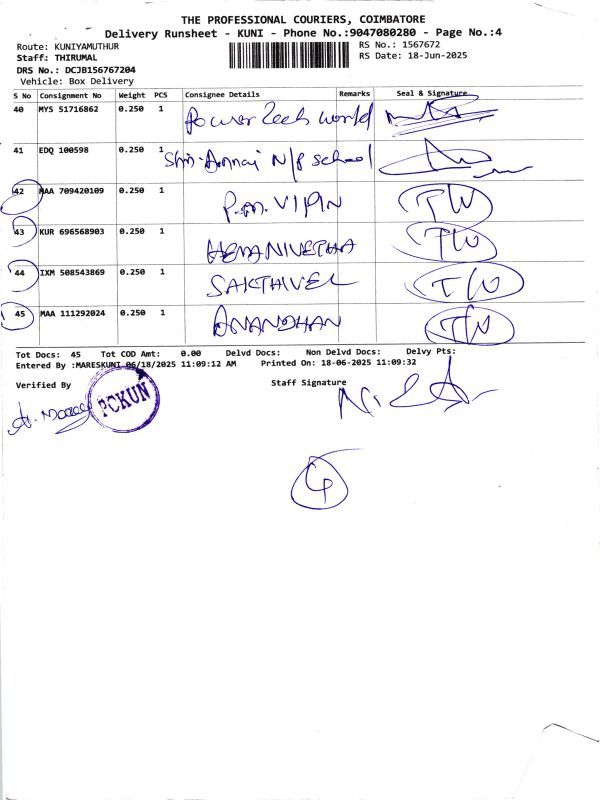 THE PROFESSIONAL COURIERS, COIMBATORE
Delivery Runsheet - KUNI - Phone No.:9047080280 - Page No.:4
Route: KUNIYAMUTHUR
RS No.: 1567672
Staff: THIRUMAL
RS Date: 18-Jun-2025
DRS No.: DCJB156767204
Vehicle: Box Delivery
S No Consignment No Weight PCS Consignee Details Remarks Seal & Signature
40 MYS 51716862 0.250 1 Power Tech World
41 EDQ 100598 0.250 1 Shri Annai N/P School
42 MAA 709420109 0.250 1 P.M. VIPIN T/W
43 KUR 696568903 0.250 1 HEMANIVETHA T/W
44 IXM 508543869 0.250 1 SAKTHIVEL T/W
45 MAA 111292024 0.250 1 ANANDHAN T/W
Tot Docs: 45 Tot COD Amt: 0.00 Delvd Docs: Non Delvd Docs: Delvy Pts:
Entered By :MARESKUNI 06/18/2025 11:09:12 AM Printed On: 18-06-2025 11:09:32
Verified By Staff Signature
PCKUN